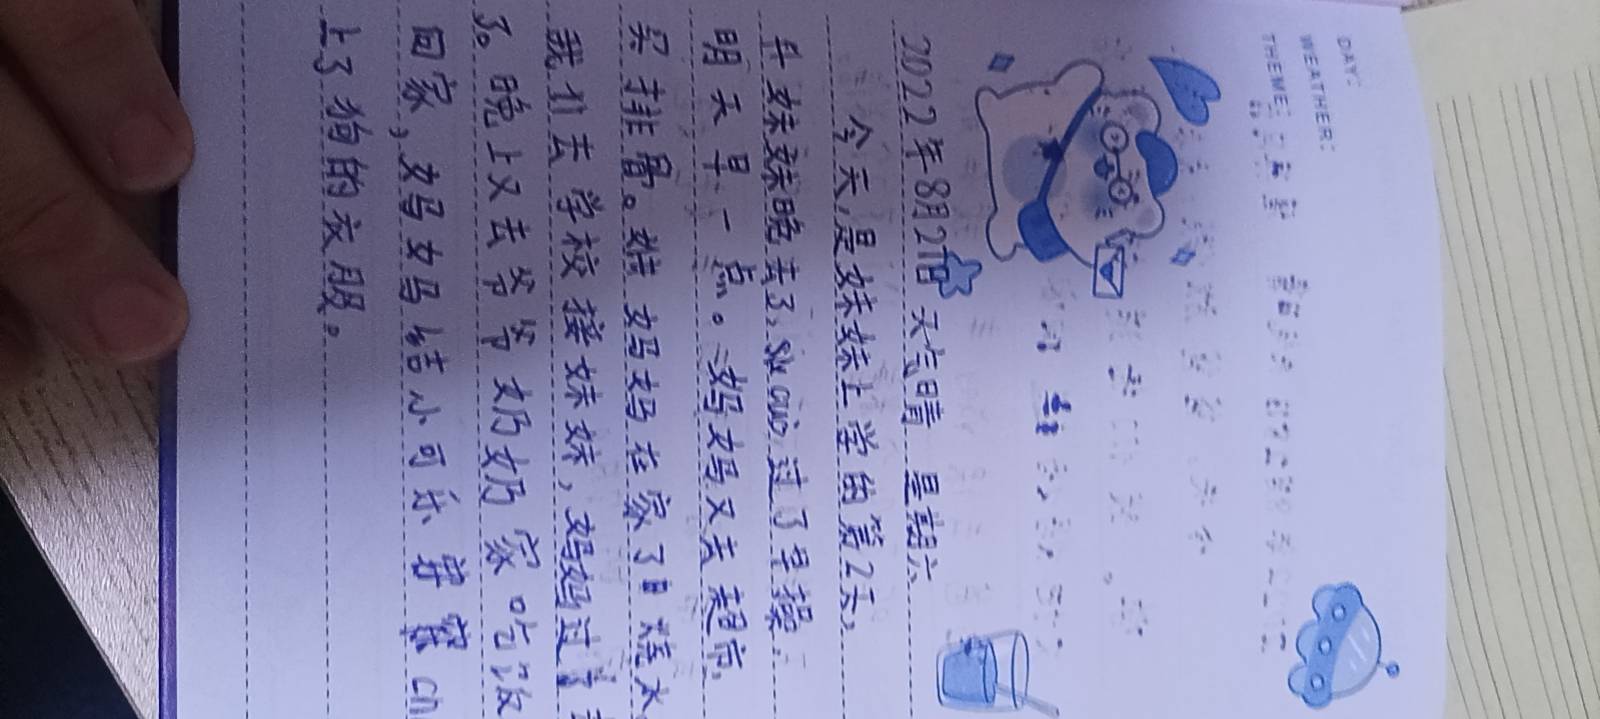 DAY:
WEATHER:
THEME:
2022年8月27日 天气晴 星期六
今天,是妹妹上学的第2天,
妹妹晚去了, 过了早操.
明天早一点。妈妈又去超市
买排骨。妈妈在家了 烧水
我们去学校接妹妹,妈妈过了
了。晚上又去爷爷奶奶家吃饭
回家,妈妈妈给小可乐穿
上了狗的衣服。